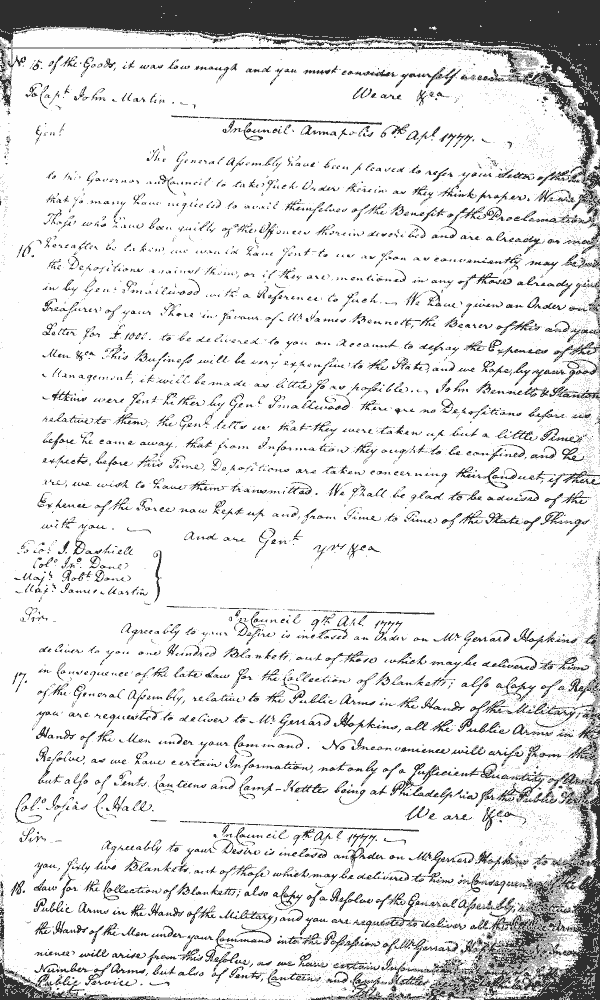 No. 15. of the Goods, it was low enough and you must consider yourself
To Capt. John Martin. We are &ca
In Council Annapolis 6th. Apl. 1777.
Gent
The General Assembly have been pleased to refer your Letter of the
to the Governor and Council to take such Order therein as they think proper. We are
that so many have neglected to avail themselves of the Benefit of the Proclamation
Those who have been guilty of the Offences therein described and are already or may
16. hereafter be taken we would have sent to us as soon as conveniently may be,
the Depositions against them, or if they are mentioned in any of those already given
in by Genl. Smallwood with a Reference to such. We have given an Order on
Treasurer of your Shore in favour of Mr. James Bennett, the Bearer of this and your
Letter for £ 100. to be delivered to you on Account to defray the Expences of the
Men &ca This Business will be very expensive to the State, and we hope, by your good
Management, it will be made as little so as possible. John Bennett & Stanton
Atkins were sent hither by Genl. Smallwood there are no Depositions before us
relative to them, the Genl. tells us that they were taken up but a little Time
before he came away, that from Information they ought to be confined, and he
expects, before this Time, Depositions are taken concerning their Conduct, if there
are, we wish to have them transmitted. We shall be glad to be advised of the
Expence of the Force now kept up and, from Time to Time of the State of Things
with you. And are Gent. yrs &ca
To Col. J. Dashiell
Colo. Jno. Done
Majr. Robt. Done
Majr. James Martin
In Council 9th. Apl. 1777
Sir
Agreeably to your Desire is inclosed an Order on Mr. Gerrard Hopkins to
deliver to you one Hundred Blankets, out of those which may be delivered to him
17. in Consequence of the late Law for the Collection of Blankets; also a Copy of a
of the General Assembly, relative to the Public Arms in the Hands of the Military, and
you are requested to deliver to Mr. Gerrard Hopkins, all the Public Arms in the
Hands of the Men under your Command. No Inconvenience will arise from this
Resolve, as we have certain Information, not only of a sufficient Quantity of Arms
but also of Tents, Canteens and Camp-Kettles being at Philadelphia for the Public
Colo. Josias C. Hall. We are &ca
In Council 9th. Apl. 1777.
Sir
Agreeably to your Desire is inclosed an Order on Mr. Gerrard Hopkins to deliver
you, sixty two Blankets, out of those which may be delivered to him in Consequence of the
18. Law for the Collection of Blankets; also a Copy of a Resolve of the General Assembly,
Public Arms in the Hands of the Military; and you are requested to deliver all the Public Arms
the Hands of the Men under your Command into the Possession of Mr. Gerrard
nience will arise from this Resolve, as we have certain Information
Number of Arms, but also of Tents, Canteens and Camp Kettles
Public Service.